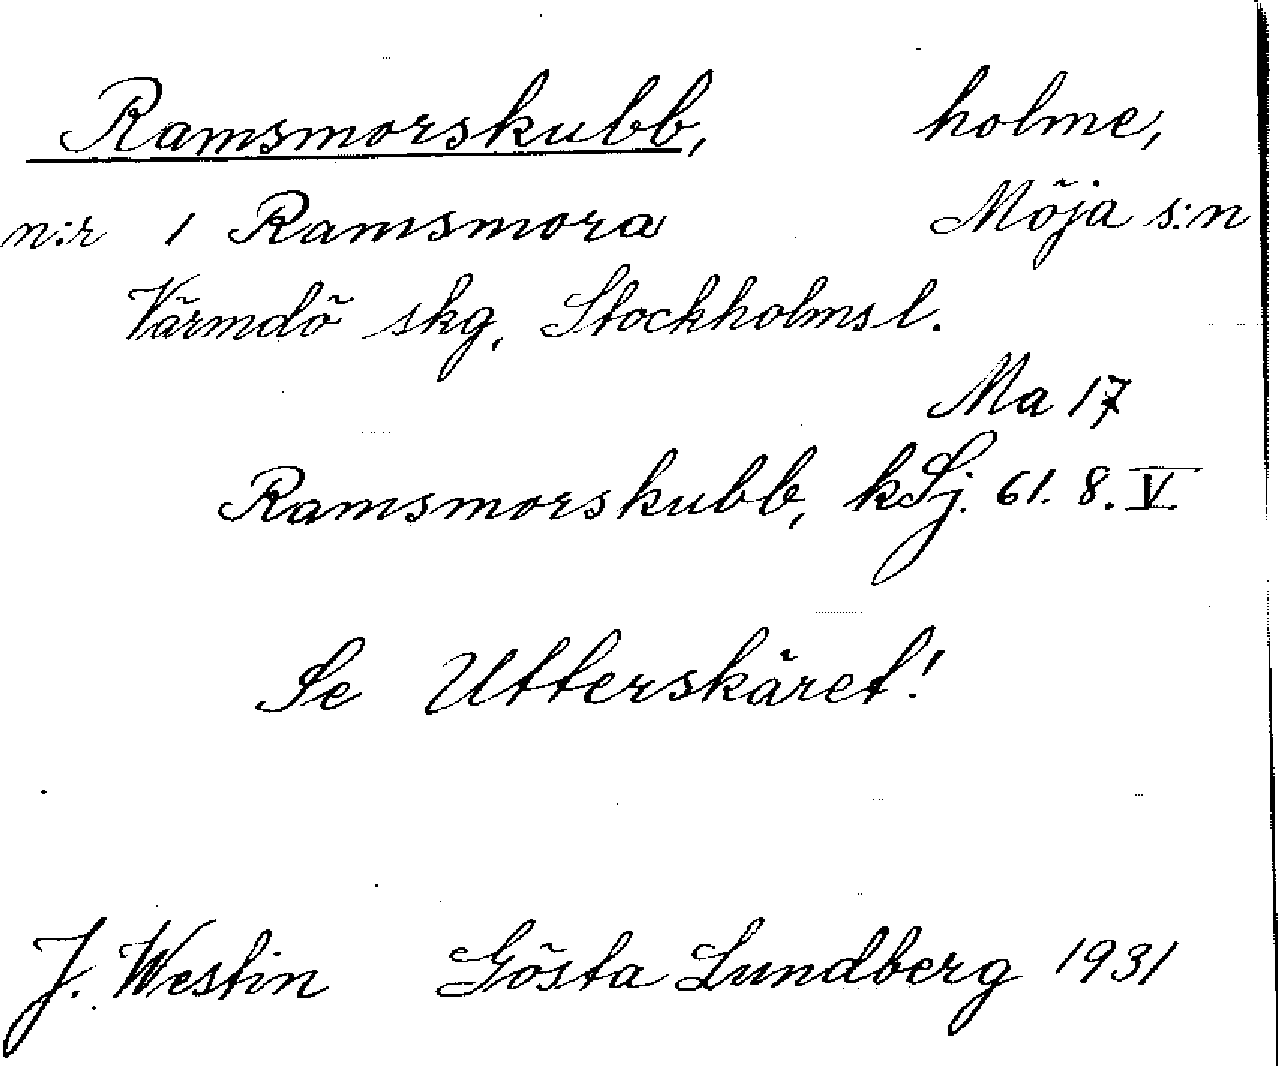 Ramsmorskubb, holme,
n:r 1 Ramsmora Möja s:n
Värmdö skg, Stockholms l.
Ma 17
Ramsmorskubb, kSj. 61. 8. V.
Se Utterskäret!
J. Westin Gösta Lundberg 1931